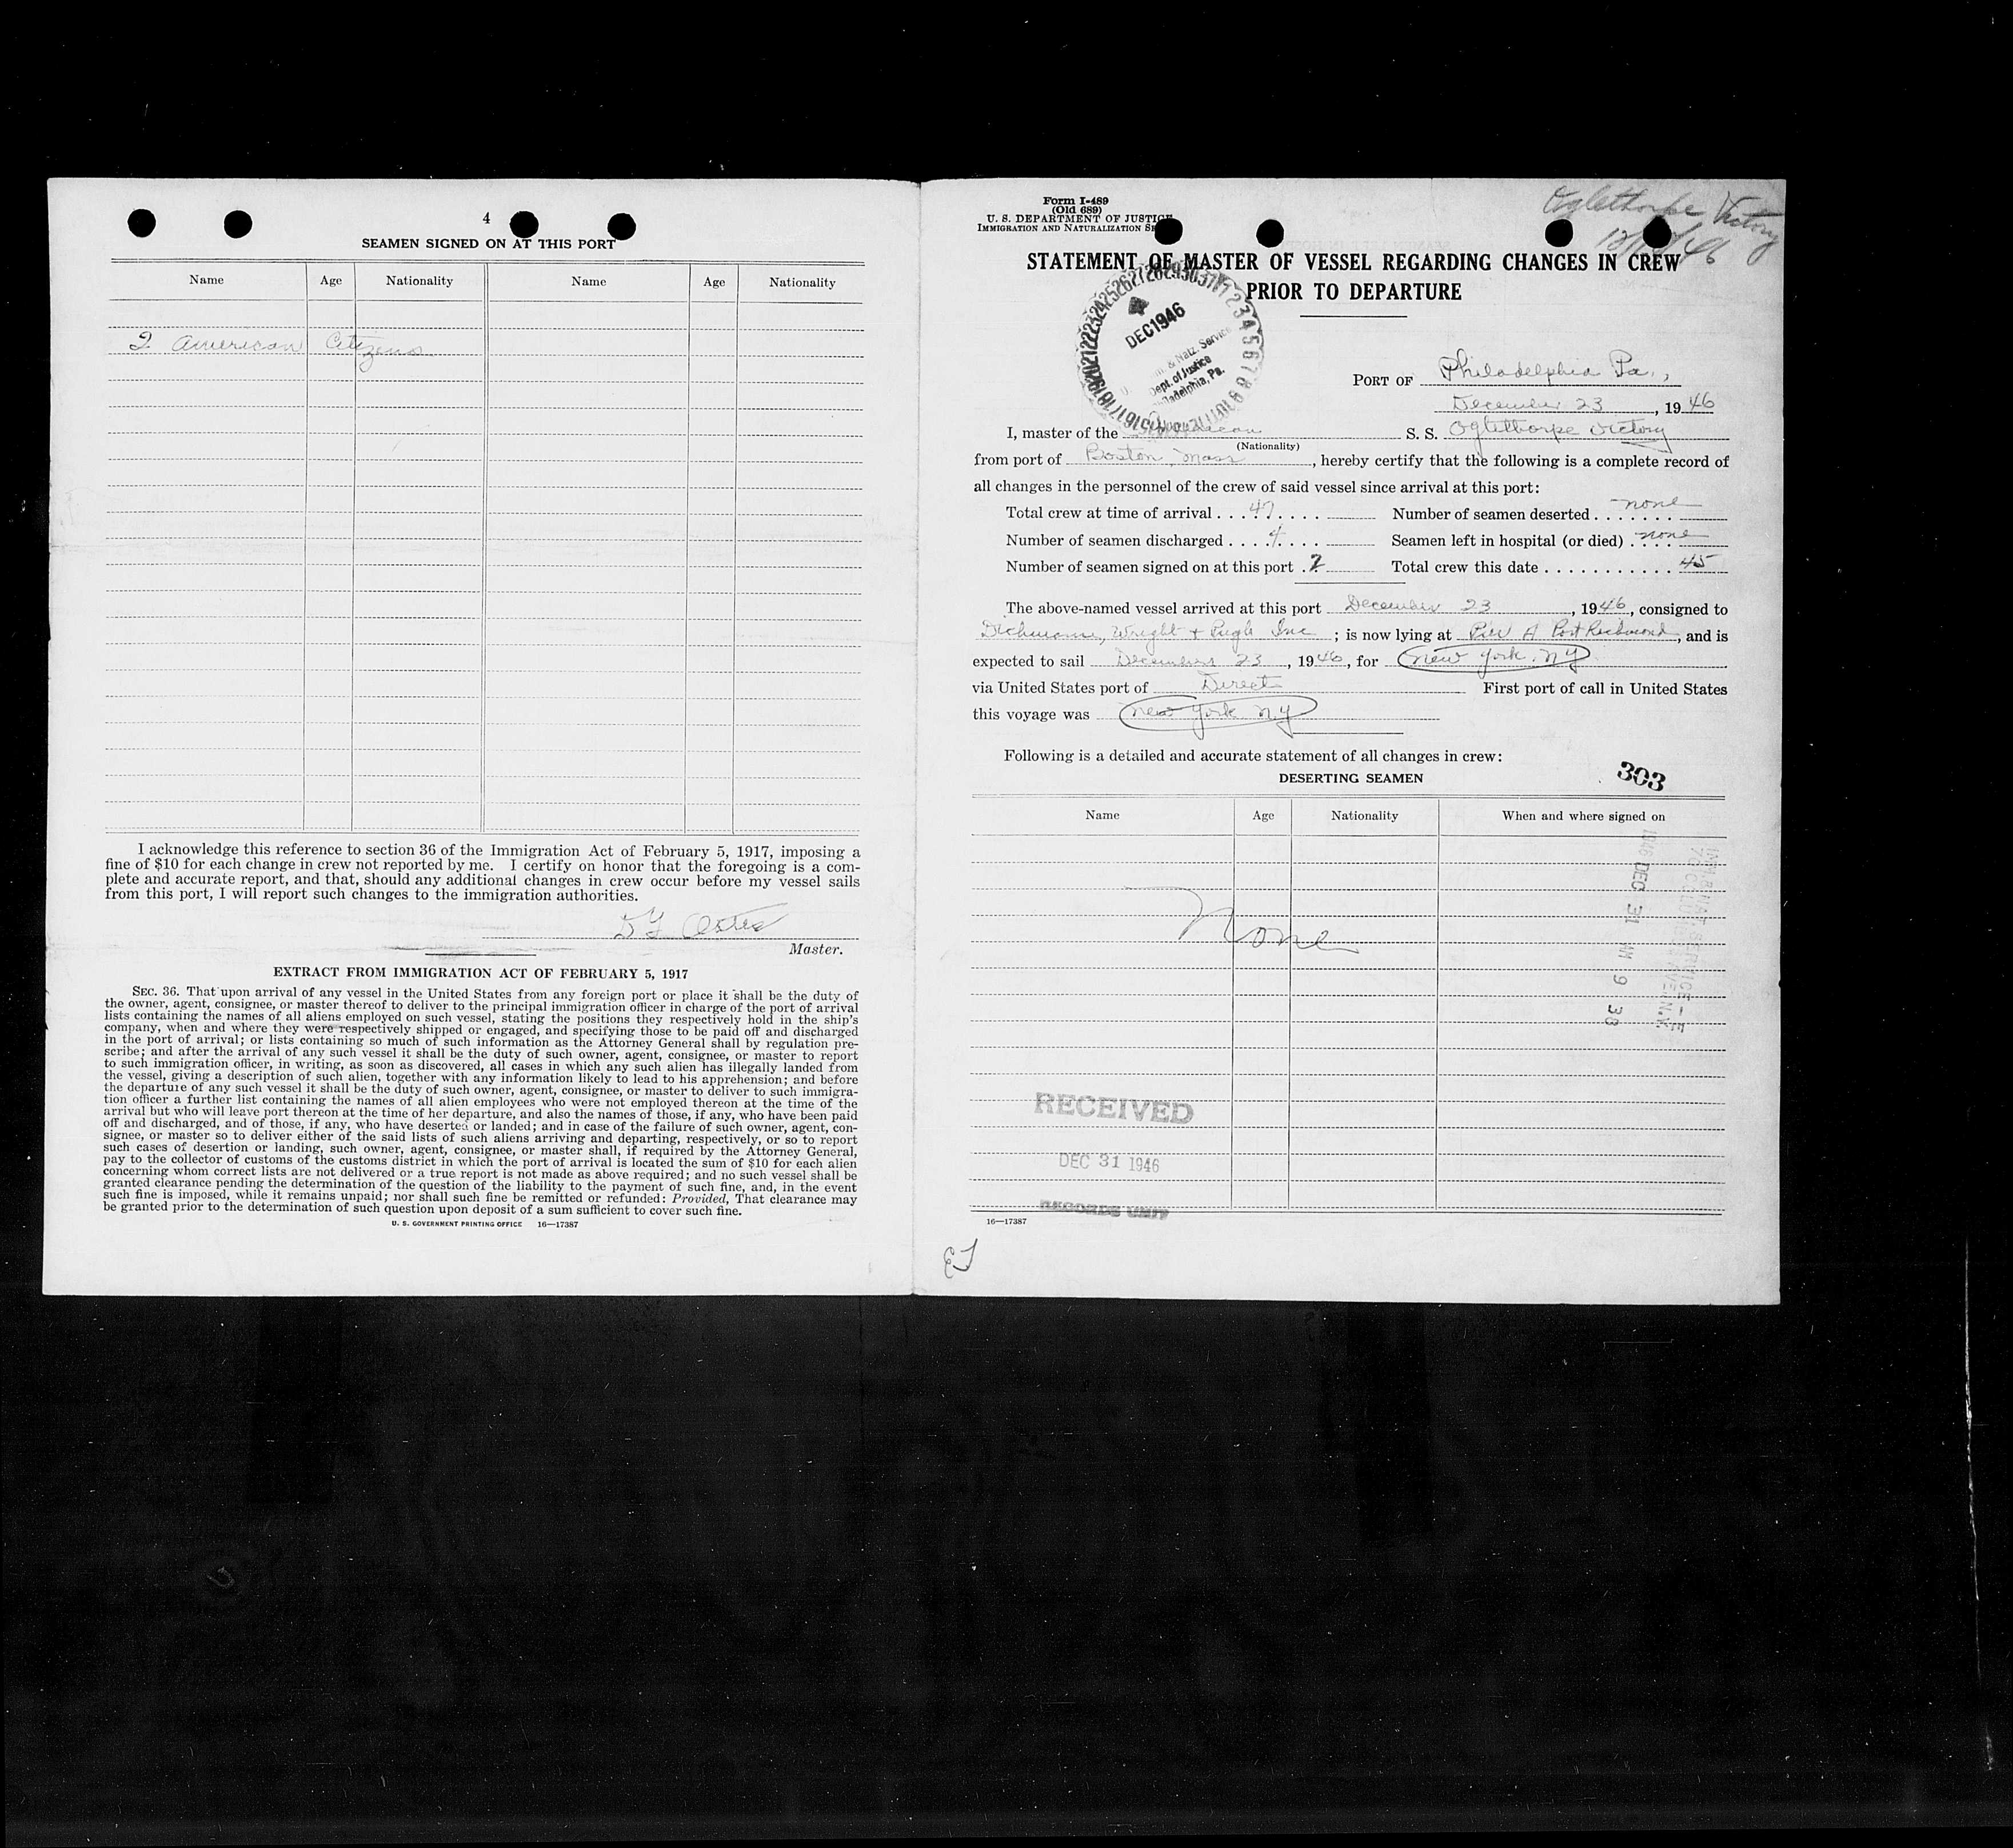 4
SEAMEN SIGNED ON AT THIS PORT
Name Age Nationality Name Age Nationality
2 American Citizens
I acknowledge this reference to section 36 of the Immigration Act of February 5, 1917, imposing a
fine of $10 for each change in crew not reported by me. I certify on honor that the foregoing is a com-
plete and accurate report, and that, should any additional changes in crew occur before my vessel sails
from this port, I will report such changes to the immigration authorities.
Master.
EXTRACT FROM IMMIGRATION ACT OF FEBRUARY 5, 1917
SEC. 36. That upon arrival of any vessel in the United States from any foreign port or place it shall be the duty of
the owner, agent, consignee, or master thereof to deliver to the principal immigration officer in charge of the port of arrival
lists containing the names of all aliens employed on such vessel, stating the positions they respectively hold in the ship's
company, when and where they were respectively shipped or engaged, and specifying those to be paid off and discharged
in the port of arrival; or lists containing so much of such information as the Attorney General shall by regulation pre-
scribe; and after the arrival of any such vessel it shall be the duty of such owner, agent, consignee, or master to report
to such immigration officer, in writing, as soon as discovered, all cases in which any such alien has illegally landed from
the vessel, giving a description of such alien, together with any information likely to lead to his apprehension; and before
the departure of any such vessel it shall be the duty of such owner, agent, consignee, or master to deliver to such immigra-
tion officer a further list containing the names of all alien employees who were not employed thereon at the time of the
arrival but who will leave port thereon at the time of her departure, and also the names of those, if any, who have been paid
off and discharged, and of those, if any, who have deserted or landed; and in case of the failure of such owner, agent, con-
signee, or master so to deliver either of the said lists of such aliens arriving and departing, respectively, or so to report
such cases of desertion or landing, such owner, agent, consignee, or master shall, if required by the Attorney General,
pay to the collector of customs of the customs district in which the port of arrival is located the sum of $10 for each alien
concerning whom correct lists are not delivered or a true report is not made as above required; and no such vessel shall be
granted clearance pending the determination of the question of the liability to the payment of such fine, and, in the event
such fine is imposed, while it remains unpaid; nor shall such fine be remitted or refunded: Provided, That clearance may
be granted prior to the determination of such question upon deposit of a sum sufficient to cover such fine.
U. S. GOVERNMENT PRINTING OFFICE 16—17387
Form I-489
(Old 689)
U. S. DEPARTMENT OF JUSTICE
IMMIGRATION AND NATURALIZATION SE
Oglethorpe Victory
STATEMENT OF MASTER OF VESSEL REGARDING CHANGES IN CREW
PRIOR TO DEPARTURE
DEC 1946
& Natz. Service
Dept. of Justice
iladelphia, Pa.
PORT OF Philadelphia Pa.,
December 23, 1946
I, master of the American S. S. Oglethorpe Victory
(Nationality)
from port of Boston, Mass, hereby certify that the following is a complete record of
all changes in the personnel of the crew of said vessel since arrival at this port:
Total crew at time of arrival . . . 47 . . . . Number of seamen deserted . . . . . . . none
Number of seamen discharged . . . . 4 . . . . Seamen left in hospital (or died) . . . . none
Number of seamen signed on at this port . 2 Total crew this date . . . . . . . . . . . 45
The above-named vessel arrived at this port December 23, 1946, consigned to
Dichmann, Wright + Pugh Inc; is now lying at Pier A Port Richmond, and is
expected to sail December 23, 1946, for New York, NY
via United States port of Direct First port of call in United States
this voyage was New York NY
Following is a detailed and accurate statement of all changes in crew:
DESERTING SEAMEN
303
Name Age Nationality When and where signed on
None
1946 DEC 31 AM 9 38
RECEIVED
DEC 31 1946
RECORDS UNIT
16—17387